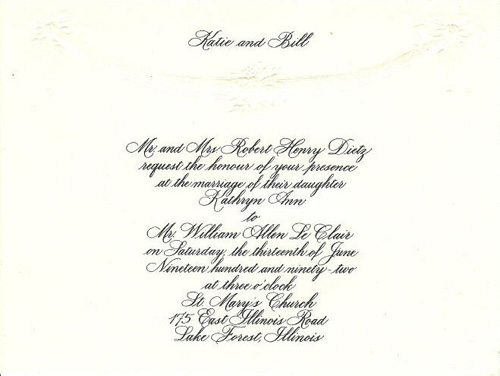 Katie and Bill
Mr. and Mrs. Robert Henry Dietz
request the honour of your presence
at the marriage of their daughter
Kathryn Ann
to
Mr. William Allen Le Clair
on Saturday, the thirteenth of June
Nineteen hundred and ninety-two
at three o'clock
St. Mary's Church
175 East Illinois Road
Lake Forest, Illinois